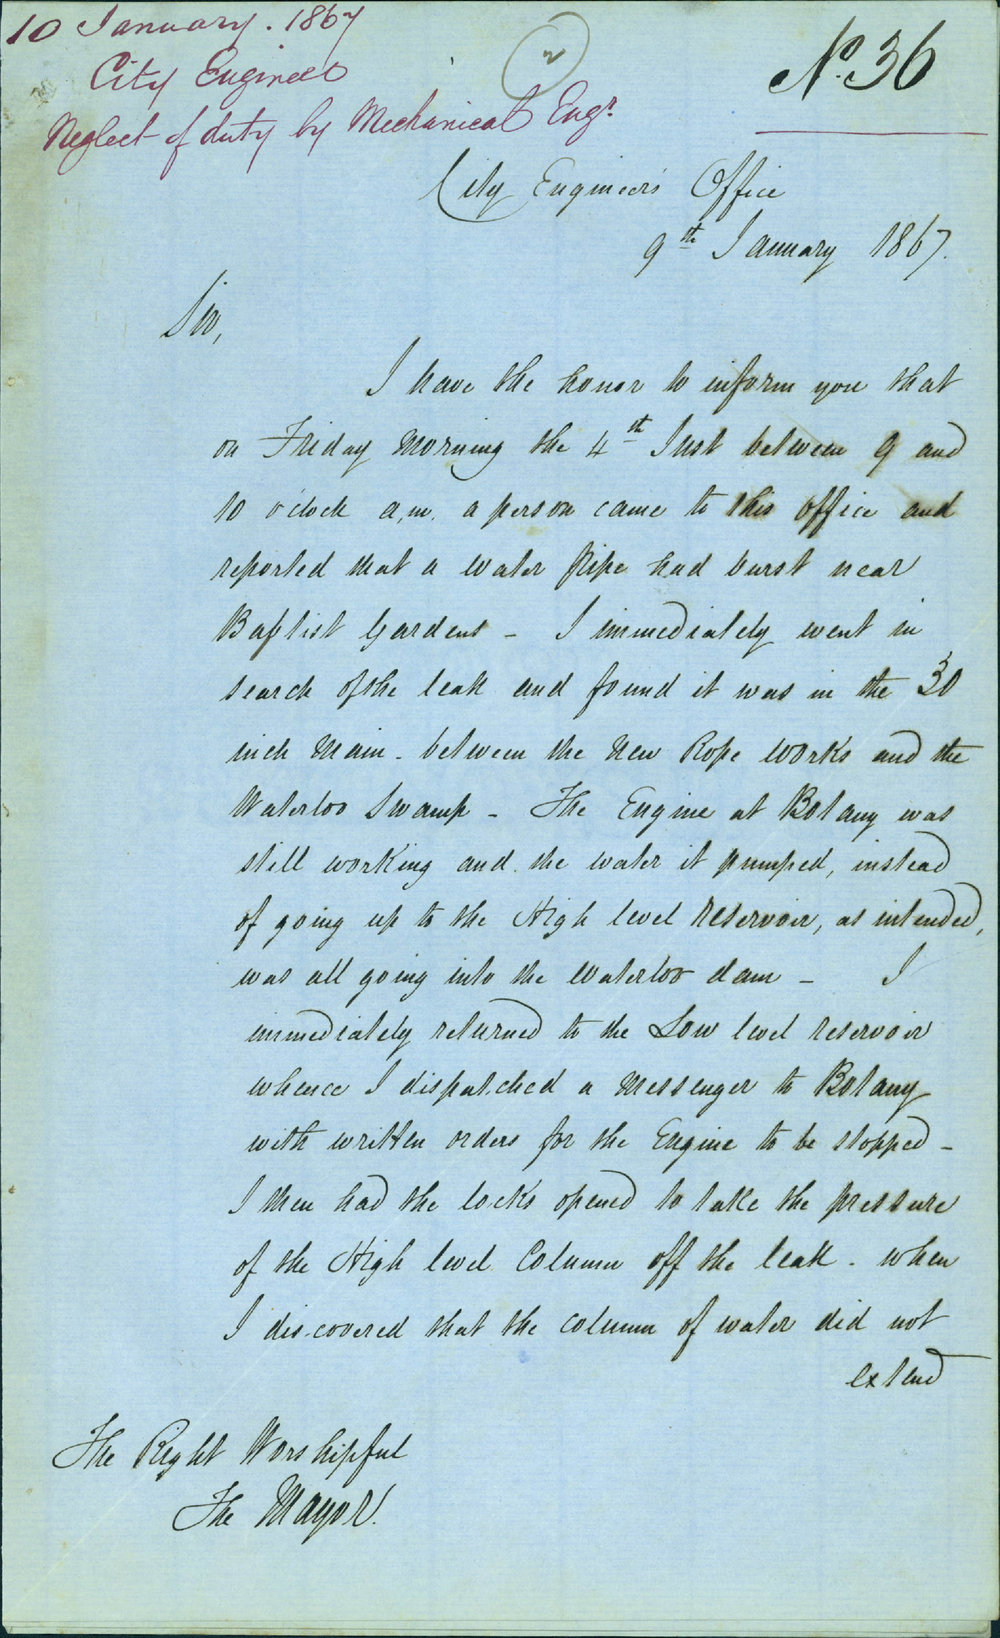 10 January. 1867
City Engineer
Neglect of duty by Mechanical Engr.
2
No. 36
City Engineer's Office
9th January 1867.
Sir,
I have the honor to inform you that
on Friday Morning the 4th Inst between 9 and
10 o'clock a.m. a person came to this office and
reported that a water Pipe had burst near
Baptist Gardens - I immediately went in
search of the leak and found it was in the 30
inch Main - between the New Rope Works and the
Waterloo Swamp - The Engine at Botany was
still working and the water it pumped, instead
of going up to the High level reservoir, as intended,
was all going into the Waterloo dam - I
immediately returned to the Low level reservoir
whence I dispatched a Messenger to Botany
with written orders for the Engine to be stopped -
I then had the locks opened to take the pressure
of the High level Column off the leak - when
I discovered that the column of water did not
extend
The Right Worshipful
The Mayor.